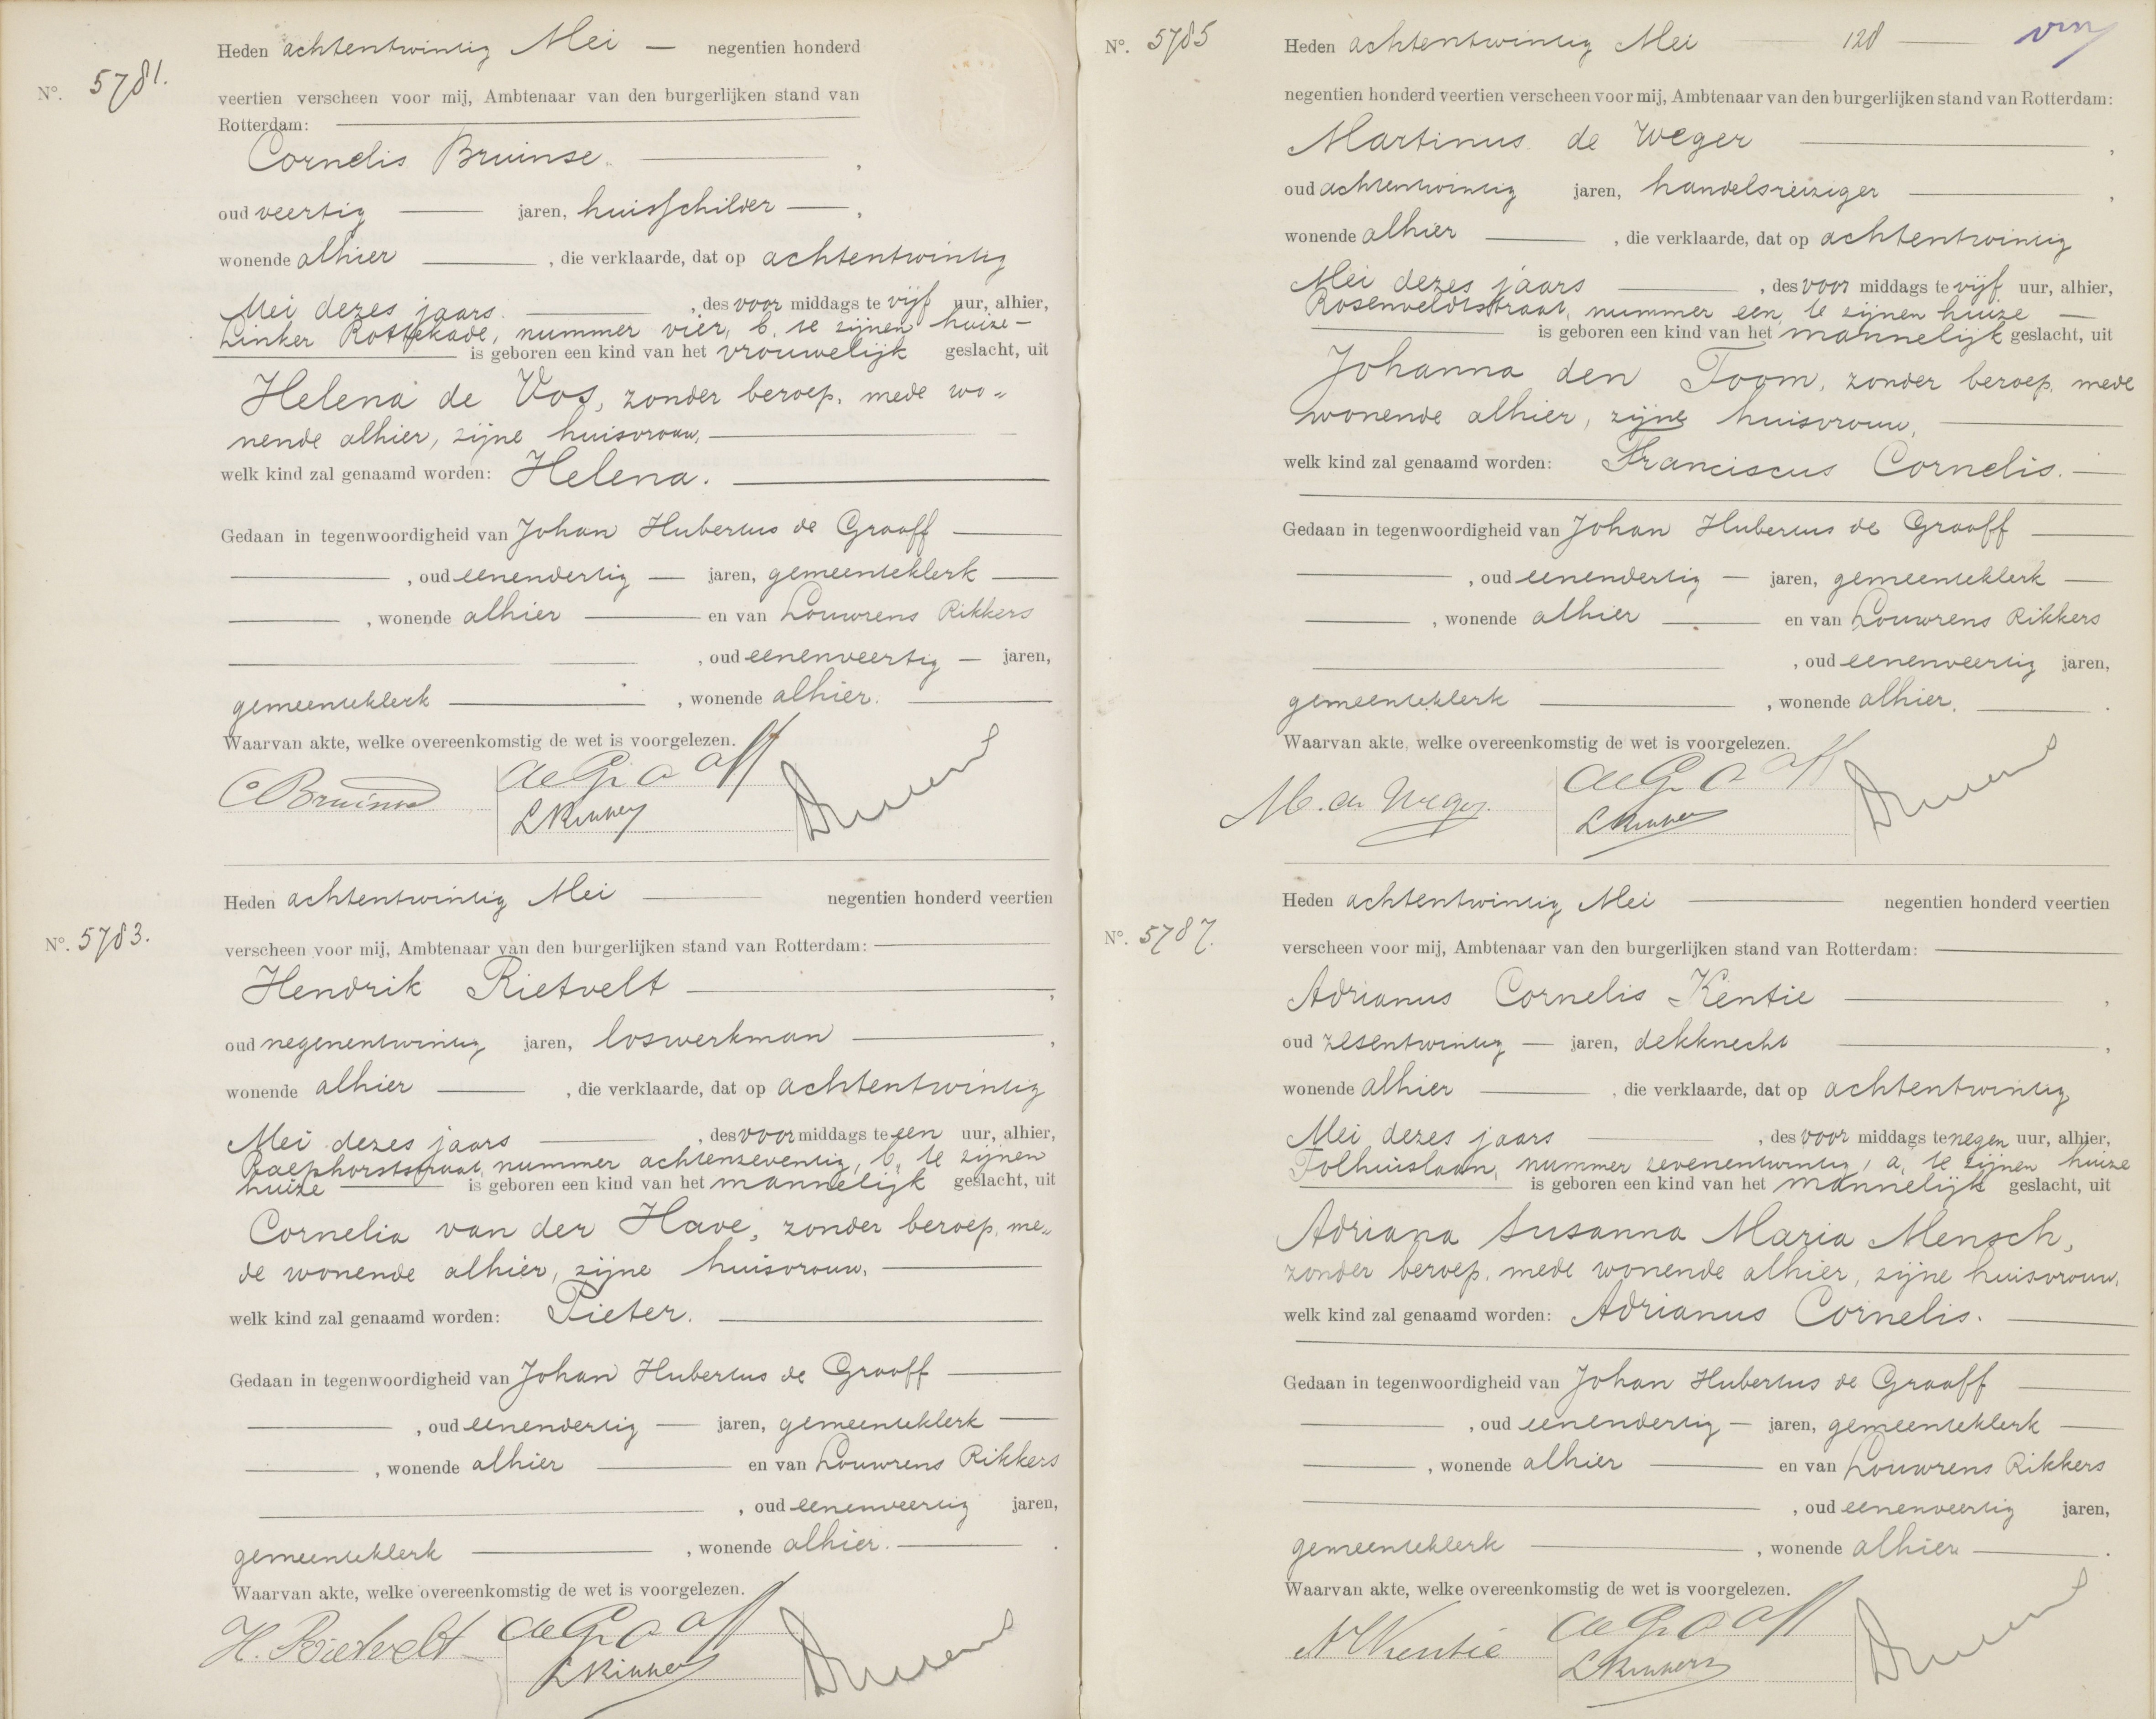 Nº. 5781.
Heden achtentwintig Mei — negentien honderd
veertien verscheen voor mij, Ambtenaar van den burgerlijken stand van
Rotterdam:
Cornelis Bruinse,
oud veertig jaren, huisschilder,
wonende alhier, die verklaarde, dat op achtentwintig
Mei dezes jaars, des voor middags te vijf uur, alhier,
Linker Rottekade, nummer vier, b, te zijnen huize —
is geboren een kind van het vrouwelijk geslacht, uit
Helena de Vos, zonder beroep, mede wo-
nende alhier, zijne huisvrouw,
welk kind zal genaamd worden: Helena.
Gedaan in tegenwoordigheid van Johan Hubertus de Graaff
, oud eenendertig — jaren, gemeenteklerk
, wonende alhier en van Louwrens Rikkers
, oud eenenveertig — jaren,
gemeenteklerk, wonende alhier.
Waarvan akte, welke overeenkomstig de wet is voorgelezen.
C Bruinse de Graaff
L Rikkers
Nº. 5783.
Heden achtentwintig Mei negentien honderd veertien
verscheen voor mij, Ambtenaar van den burgerlijken stand van Rotterdam:
Hendrik Rietvelt,
oud negenentwintig jaren, loswerkman,
wonende alhier, die verklaarde, dat op achtentwintig
Mei dezes jaars, des voor middags te een uur, alhier,
nummer achtenzeventig, b, te zijnen
huize is geboren een kind van het mannelijk geslacht, uit
Cornelia van der Have, zonder beroep, me-
de wonende alhier, zijne huisvrouw,
welk kind zal genaamd worden: Pieter.
Gedaan in tegenwoordigheid van Johan Hubertus de Graaff
, oud eenendertig — jaren, gemeenteklerk
, wonende alhier en van Louwrens Rikkers
, oud eenenveertig jaren,
gemeenteklerk, wonende alhier.
Waarvan akte, welke overeenkomstig de wet is voorgelezen.
H. Rietvelt de Graaff
L Rikkers
Nº. 5785
Heden achtentwintig Mei 128
negentien honderd veertien verscheen voor mij, Ambtenaar van den burgerlijken stand van Rotterdam:
Martinus de Weger,
oud achtentwintig jaren, handelsreiziger,
wonende alhier, die verklaarde, dat op achtentwintig
Mei dezes jaars, des voor middags te vijf uur, alhier,
Rosenveldtstraat, nummer een, te zijnen huize —
is geboren een kind van het mannelijk geslacht, uit
Johanna den Toom, zonder beroep, mede
wonende alhier, zijne huisvrouw,
welk kind zal genaamd worden: Franciscus Cornelis.
Gedaan in tegenwoordigheid van Johan Hubertus de Graaff
, oud eenendertig — jaren, gemeenteklerk
, wonende alhier en van Louwrens Rikkers
, oud eenenveertig jaren,
gemeenteklerk, wonende alhier.
Waarvan akte, welke overeenkomstig de wet is voorgelezen.
M. de Weger de Graaff
L Rikkers
Nº. 5787.
Heden achtentwintig Mei negentien honderd veertien
verscheen voor mij, Ambtenaar van den burgerlijken stand van Rotterdam:
Adrianus Cornelis Kentie,
oud zesentwintig — jaren, dekknecht,
wonende alhier, die verklaarde, dat op achtentwintig
Mei dezes jaars, des voor middags te negen uur, alhier,
Tolhuislaan, nummer zevenentwintig, a, te zijnen huize
is geboren een kind van het mannelijk geslacht, uit
Adriana Susanna Maria Mensch,
zonder beroep, mede wonende alhier, zijne huisvrouw,
welk kind zal genaamd worden: Adrianus Cornelis.
Gedaan in tegenwoordigheid van Johan Hubertus de Graaff
, oud eenendertig — jaren, gemeenteklerk
, wonende alhier en van Louwrens Rikkers
, oud eenenveertig jaren,
gemeenteklerk, wonende alhier.
Waarvan akte, welke overeenkomstig de wet is voorgelezen.
A Kentie de Graaff
L Rikkers